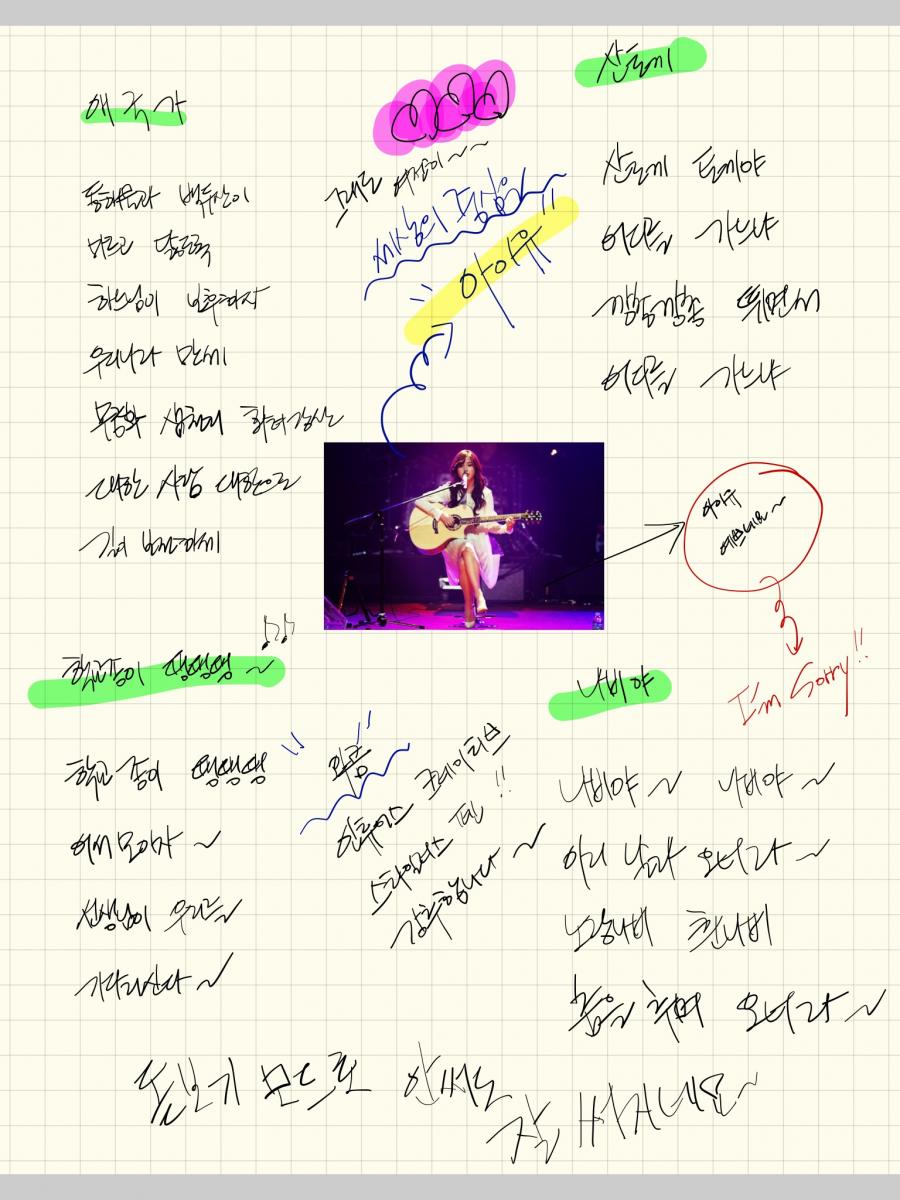 애국가
동해물과 백두산이
마르고 닳도록
하느님이 보우하사
우리나라 만세
무궁화 삼천리 화려강산
대한 사람 대한으로
길이 보전하세
그래도 여전히~~
세상의 중심은
아이유
산토끼
산토끼 토끼야
어디를 가느냐
깡충깡충 뛰면서
어디를 가느냐
아이유
이쁘네요~
I'm Sorry!!
학교종이 땡땡땡~
학교종이 땡땡땡
어서 모이자~
선생님이 우리를
기다리신다~
와콤
인튜어스 크리에이티브
스타일러스 펜!!
강추합니다~
나비야
나비야~ 나비야~
이리 날아 오너라~
노랑나비 흰나비
춤을 추며 오너라~
돋보기 모드로 안써도
잘 써지네요~